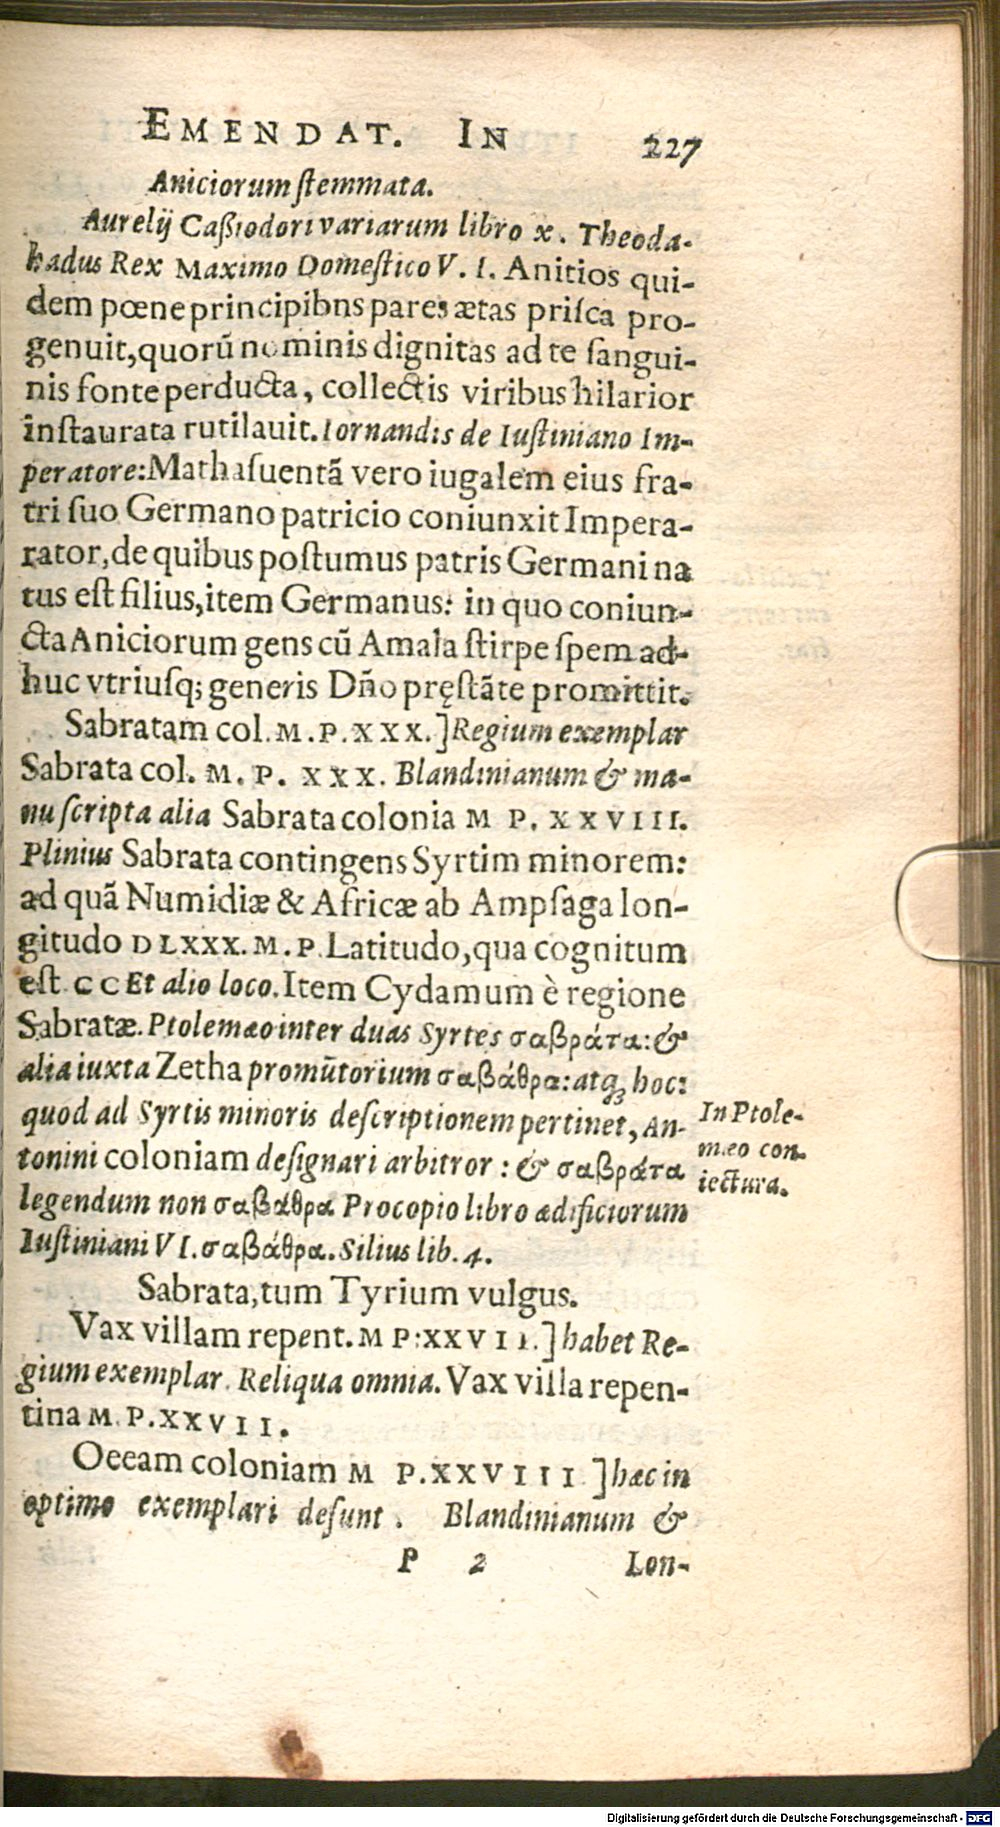 EMENDAT. IN 227
Aniciorum ſtemmata.
Aurelij Caßiodori variarum libro x. Theoda-
hadus Rex Maximo Domeſtico V. I. Anitios qui-
dem pœne principibns pares ætas priſca pro-
genuit, quorũ nominis dignitas ad te ſangui-
nis fonte perducta, collectis viribus hilarior
inſtaurata rutilauit. Iornandis de Iuſtiniano Im-
peratore: Mathaſuentã vero iugalem eius fra-
tri ſuo Germano patricio coniunxit Impera-
rator, de quibus poſtumus patris Germani na
tus eſt filius, item Germanus: in quo coniun-
cta Aniciorum gens cũ Amala ſtirpe ſpem ad-
huc vtriuſq; generis Dño pręſtãte promittit.
Sabratam col. M. P. XXX.] Regium exemplar
Sabrata col. M. P. XXX. Blandinianum & ma-
nu ſcripta alia Sabrata colonia M P. XXVIII.
Plinius Sabrata contingens Syrtim minorem:
ad quã Numidiæ & Africæ ab Ampſaga lon-
gitudo DLXXX. M. P. Latitudo, qua cognitum
eſt CC Et alio loco. Item Cydamum è regione
Sabratæ. Ptolemæo inter duas Syrtes σαβράτα: &
alia iuxta Zetha promũtorium σαβάθρα: atq; hoc:
quod ad Syrtis minoris deſcriptionem pertinet, An-
tonini coloniam deſignari arbitror: & σαβράτα
legendum non σαβάθρα Procopio libro ædificiorum
Iuſtiniani VI. σαβάθρα. Silius lib. 4.
In Ptole-
mæo con-
iectura.
Sabrata, tum Tyrium vulgus.
Vax villam repent. M P: XXVII.] habet Re-
gium exemplar. Reliqua omnia. Vax villa repen-
tina M. P. XXVII.
Oeeam coloniam M P. XXVIII] hæc in
optimo exemplari deſunt. Blandinianum &
P 2 Lon-
Digitalisierung gefördert durch die Deutsche Forschungsgemeinschaft - DFG